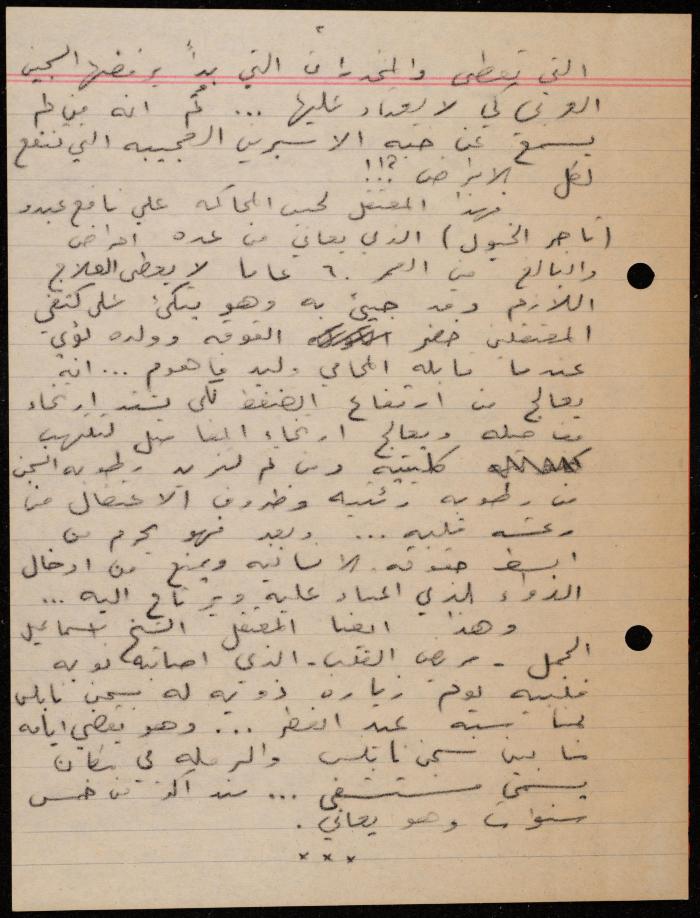 التي تعطى والمخدرات التي بدأ يرفضها السجين
العربي كي لا يعتاد عليها ... ثم انه من لم
يسمع عن حبه الاسبرين العجيبه التي تنفع
لكل الامراض ؟!!
فهذا المعتقل لحين المحاكمه علي نافع عبدو
(تاجر الخيول) الذي يعاني من عده امراض
والبالغ من العمر ٦٠ عاما لا يعطى العلاج
اللازم وقد جيئ به وهو يتكئ على كتفي
المعتقلين خضر القوقه وولده لؤي
عندما قابله المحامي وليد فاهوم ... انه
يعالج من ارتفاع الضغط لكي يشتد ارتخاء
مفاصله ويعالج ارتخاء المفاصل لتلتهب
كليتيه ومن ثم لتزيد رطوبه السجن
من رطوبه رئتيه وظروف الاعتقال من
رعشه قلبه ... وبعد فهو يحرم من
ابسط حقوقه الانسانيه ويمنع من ادخال
الدواء الذي اعتاد عليه ويرتاح اليه ...
وهذا ايضا المعتقل الشيخ اسماعيل
الجمل - مريض القلب - الذي اصابته نوبه
قلبيه يوم زياره ذويه له بسجن نابلس
بمناسبه عيد الفطر ... وهو يقضي ايامه
ما بين سجن نابلس والرمله في مكان
يسمى مستشفى ... منذ اكثر من خمس
سنوات وهو يعاني .
* * *